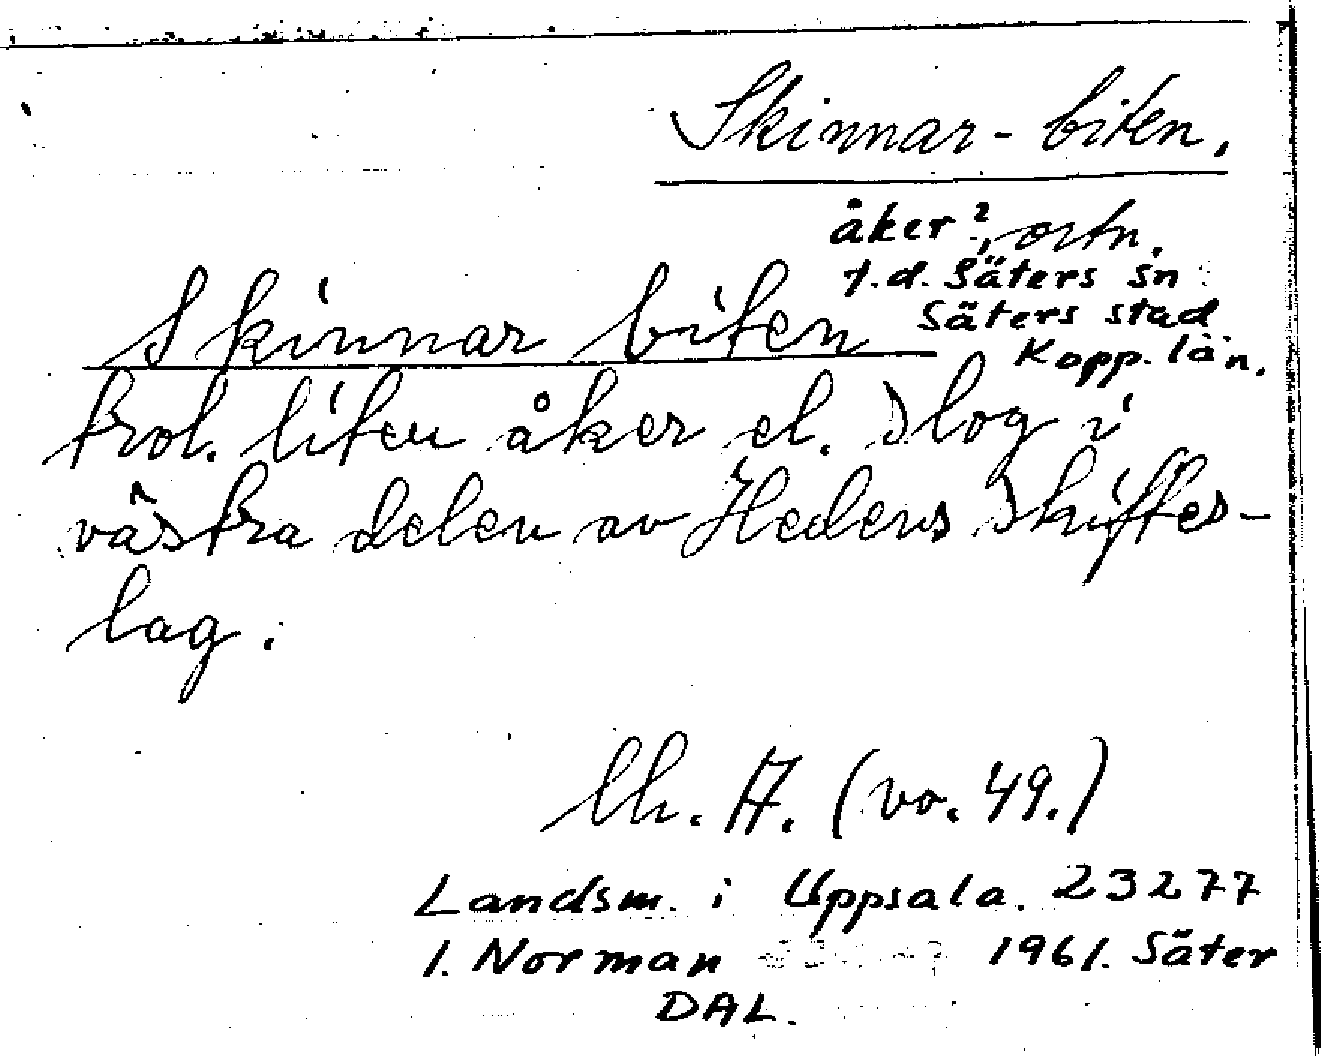 Skinnar-biten.
åker?, ortn.
f.d. Säters sn
Säters stad
Kopp. län.
Skinnar biten
trol. liten åker el. slog i
västra delen av Hedens skiftes-
lag.
Lh. A. (vo. 49.)
Landsm. i Uppsala. 23277
I. Norman 1961. Säter
DAL.